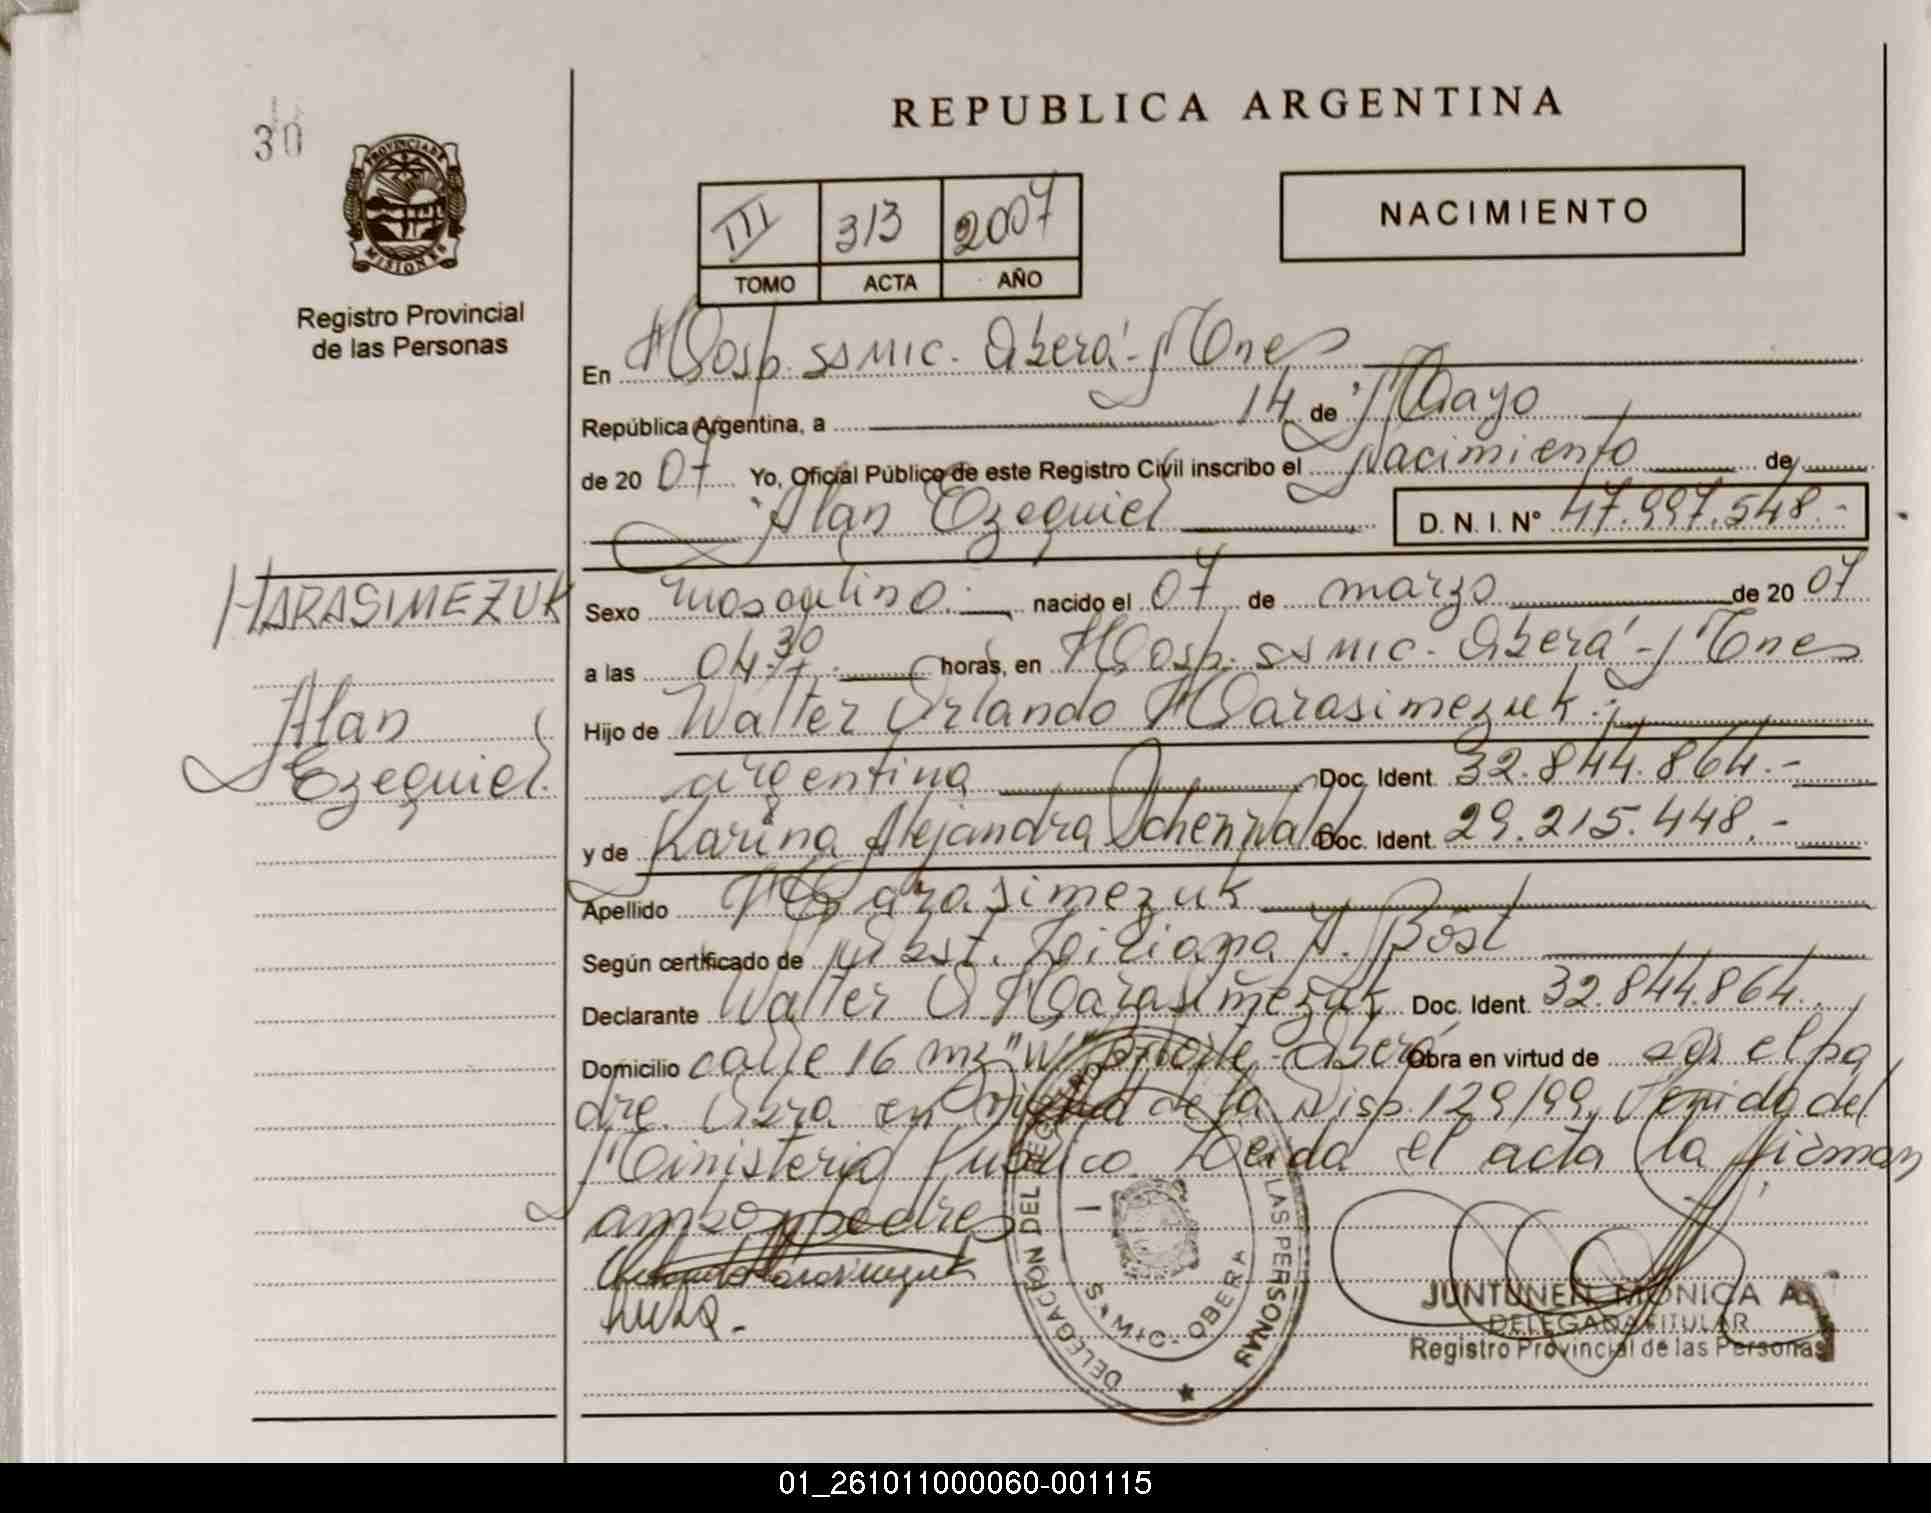 30
REPUBLICA ARGENTINA
PROVINCIA DE MISIONES
Registro Provincial
de las Personas
III 313 2007
TOMO ACTA AÑO
NACIMIENTO
En Hosp. SSMIC. Oberá - Mnes
República Argentina, a 14 de Mayo
de 2007 Yo, Oficial Público de este Registro Civil inscribo el Nacimiento de
Alan Ezequiel D. N. I. Nº 47.997.548.-
HARASIMEZUK
Alan
Ezequiel.
Sexo masculino.- nacido el 07 de marzo de 2007
a las 04.30 horas, en Hosp. SSMIC. Oberá - Mnes
Hijo de Walter Orlando Harasimezuk.-
argentina Doc. Ident. 32.844.864.-
y de Karina Alejandra Doc. Ident. 29.215.448.-
Apellido Harasimezuk
Según certificado de Obst. Liliana A. Bost
Declarante Walter O. Harasimezuk Doc. Ident. 32.844.864.
Domicilio calle 16 mz "W" Oberá Obra en virtud de ser el pa
dre. Obra en virtud de la Disp. 129/99, del
Ministerio Publico. Leida el acta la firman
ambos padres
DELEGACIÓN DEL REGISTRO DE LAS PERSONAS
S.A.M.I.C. - OBERA
JUNTUNEN MONICA A.
DELEGADA TITULAR
Registro Provincial de las Personas
01_261011000060-001115